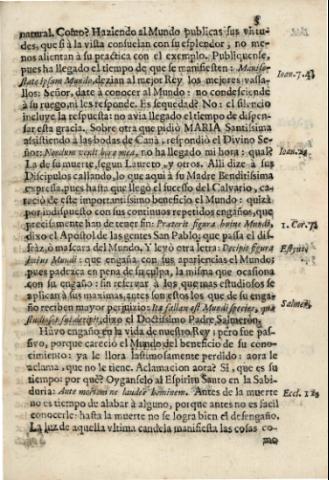 5
natural. Como? Haziendo al Mundo publicas sus virtu-
des, que si à la vista consuelan con su esplendor, no me-
nos alientan à su practica con el exemplo. Publiquense,
pues ha llegado el tiempo de que se manifiesten: Manife-
sta te ipsum Mundo, dezian al mejor Rey los mejores vassa-
llos: Señor, date à conocer al Mundo: no condesciende
à su ruego, ni les responde. Es sequedad? No: el silencio
incluye la respuesta: no avia llegado el tiempo de dispen-
sar esta gracia. Sobre otra que pidiò MARIA Santissima
assistiendo à las bodas de Canà, respondiò el Divino Se-
ñor: Nondum venit hora mea, no ha llegado mi hora: qual?
La de su muerte, segun Laureto, y otros. Alli dize à sus
Discipulos callando, lo que aqui à su Madre Benditissima
expressa, pues hasta que llegò el sucesso del Calvario, ca-
reciò de este importantissimo beneficio el Mundo: quizà
por indispuesto con sus continuos repetidos engaños, que
precisamente han de tener fin: Præterit figura huius Mundi,
dixo el Apostol de las gentes San Pablo; que passa el dis-
fràz, ò mascara del Mundo. Y leyò otra letra: Decipit figura
huius Mundi: que engaña con sus apariencias el Mundo;
pues padezca en pena de su culpa, la misma que ocasiona
con su engaño: sin reservar à los que mas estudiosos se
aplican à sus maximas, antes son estos los que de su enga-
ño reciben mayor perjuizio: Ita fallax est Mundi species,
dixo el Doctissimo Padre Salmeròn.
Tuvo engaño en la vida de nuestro Rey; pero fue pas-
sivo, porque careciò el Mundo del beneficio de su cono-
cimiento: ya le llora lastimosamente perdido: aora le
aclama, que no le tiene. Aclamacion aora? Si, que es su
tiempo por què? Oyganselo al Espiritu Santo en la Sabi-
duria: Ante mortem ne laudes hominem. Antes de la muerte
no es tiempo de alabar à alguno, porque antes no es facil
conocerle: hasta la muerte no se logra bien el desengaño.
La luz de aquella vltima candela manifiesta las cosas co-
mo
Ioan. 7.
Ioan. 2.
1. Cor. 7.
Salmer.
Eccl. 11.